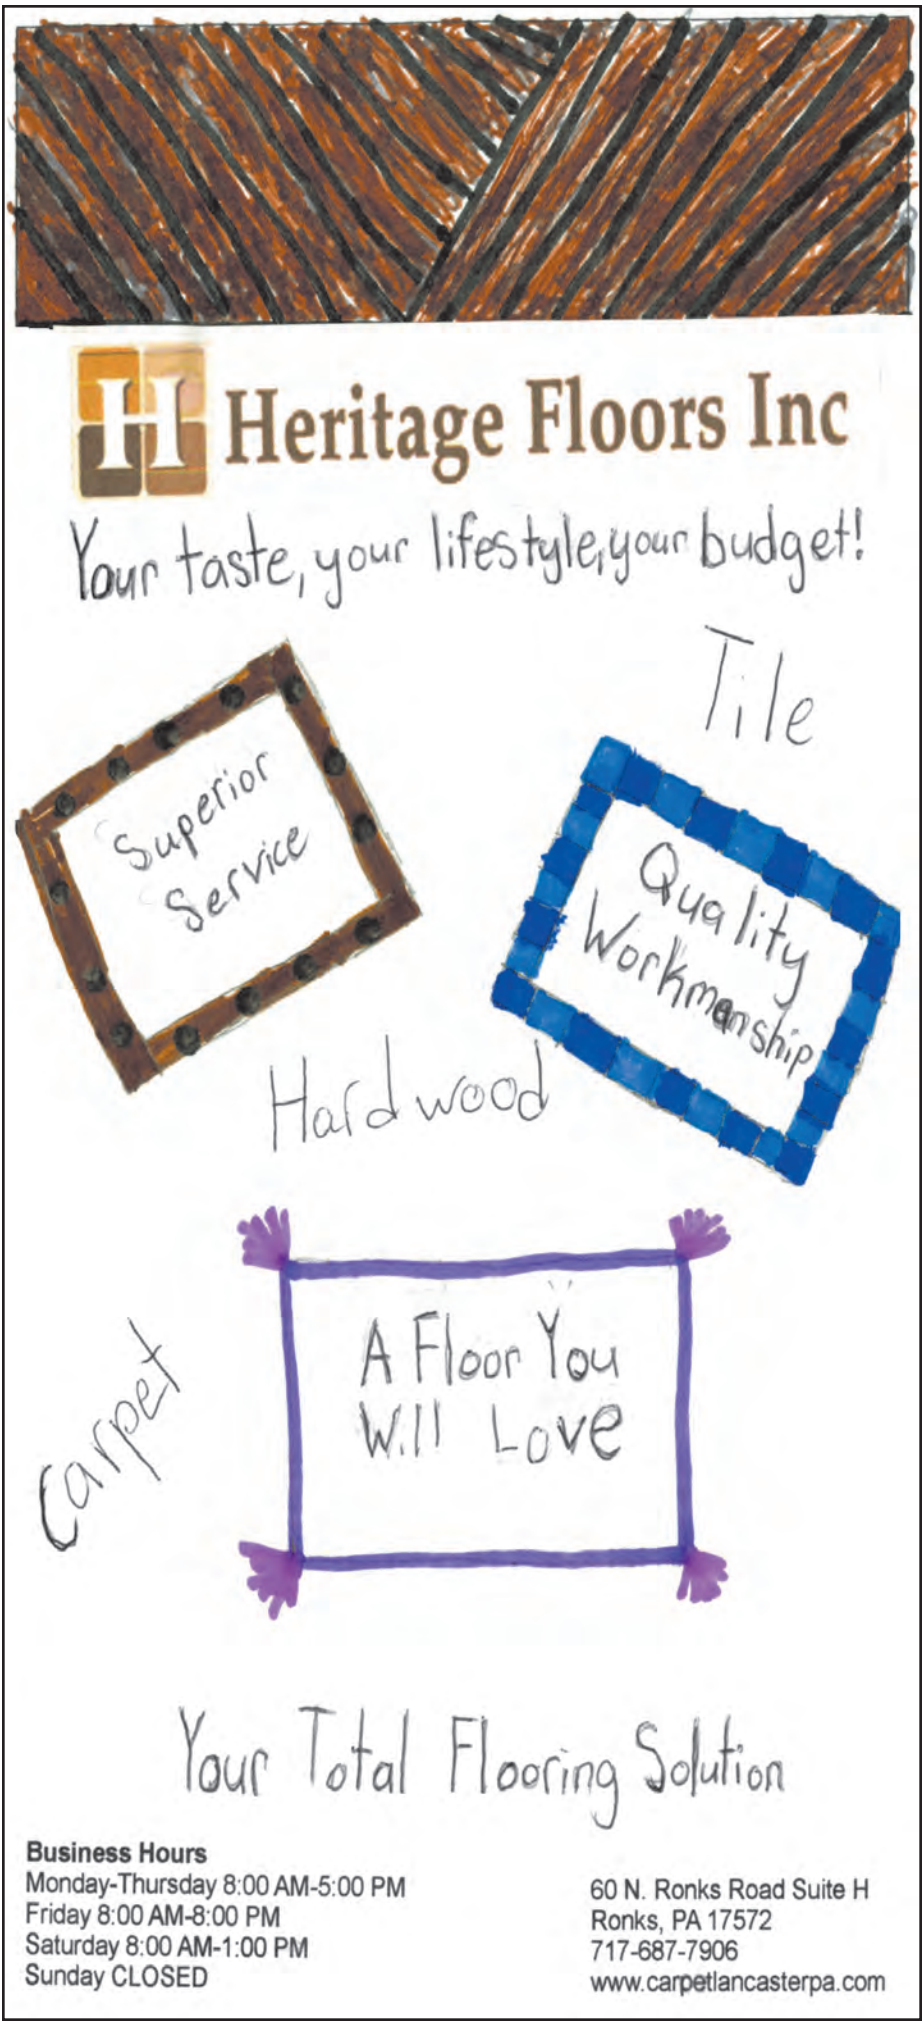 H Heritage Floors Inc
Your taste, your lifestyle, your budget!
Tile
Superior
Service
Quality
Workmanship
Hardwood
A Floor You
Will Love
Carpet
Your Total Flooring Solution
Business Hours
Monday-Thursday 8:00 AM-5:00 PM
Friday 8:00 AM-8:00 PM
Saturday 8:00 AM-1:00 PM
Sunday CLOSED
60 N. Ronks Road Suite H
Ronks, PA 17572
717-687-7906
www.carpetlancasterpa.com